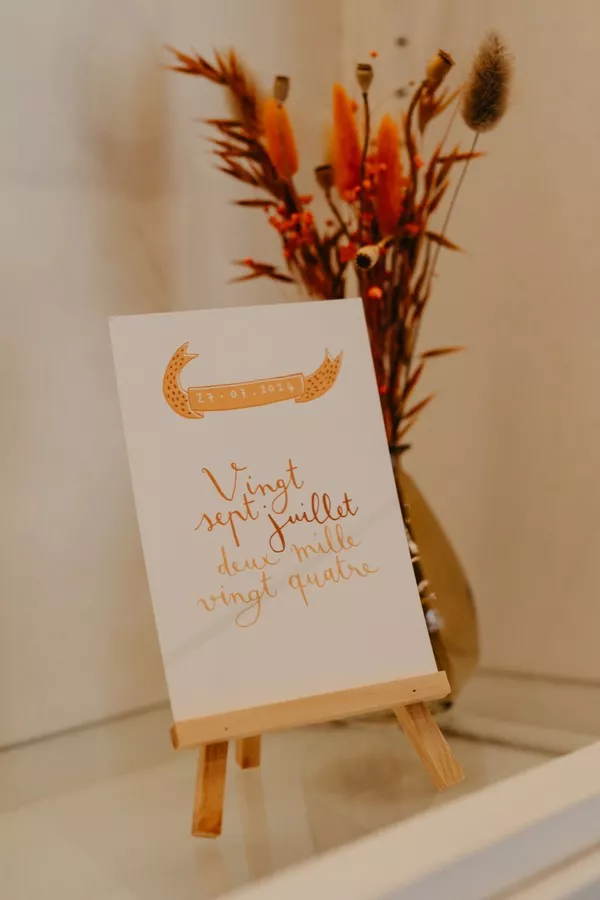 27.07.2024
Vingt
sept juillet
deux mille
vingt quatre